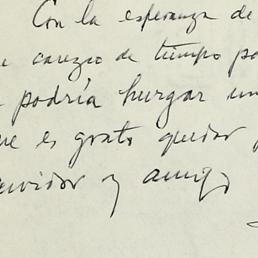 Con la esperanza de
carezco de tiempo
podría hurgar un
es grato quedar
servidor y amigo